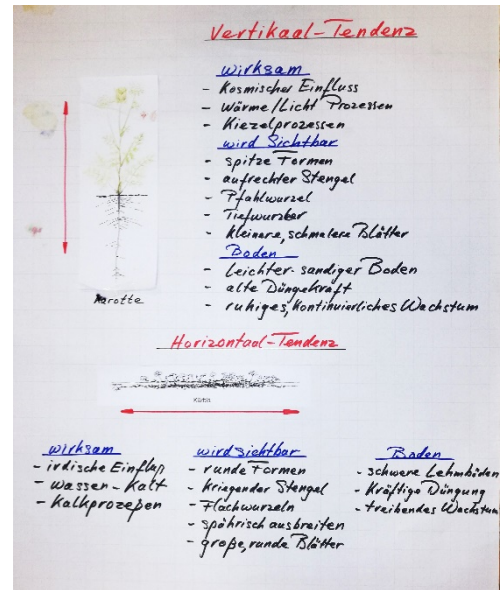 Vertikaal-Tendenz
wirksam
- Kosmischer Einfluss
- Wärme/Licht Prozessen
- Kiezelprozessen
wird Sichtbar
- spitze Formen
- aufrechter Stengel
- Pfahlwurzel
- Tiefwurzler
- kleinere, schmalere Blätter
Boden
- Leichter-sandiger Boden
- alte Düngekraft
- ruhiges, kontinuierliches Wachstum
Karotte
Horizontaal-Tendenz
wirksam
- irdische Einflüß
- wasser-Kalt
- Kalkprozeßen
wird sichtbar
- runde Formen
- kriegender Stengel
- Flachwurzeln
- sphärisch ausbreiten
- große, runde Blätter
Boden
- schwere Lehmböden
- Kräftige Düngung
- treibendes Wachstum